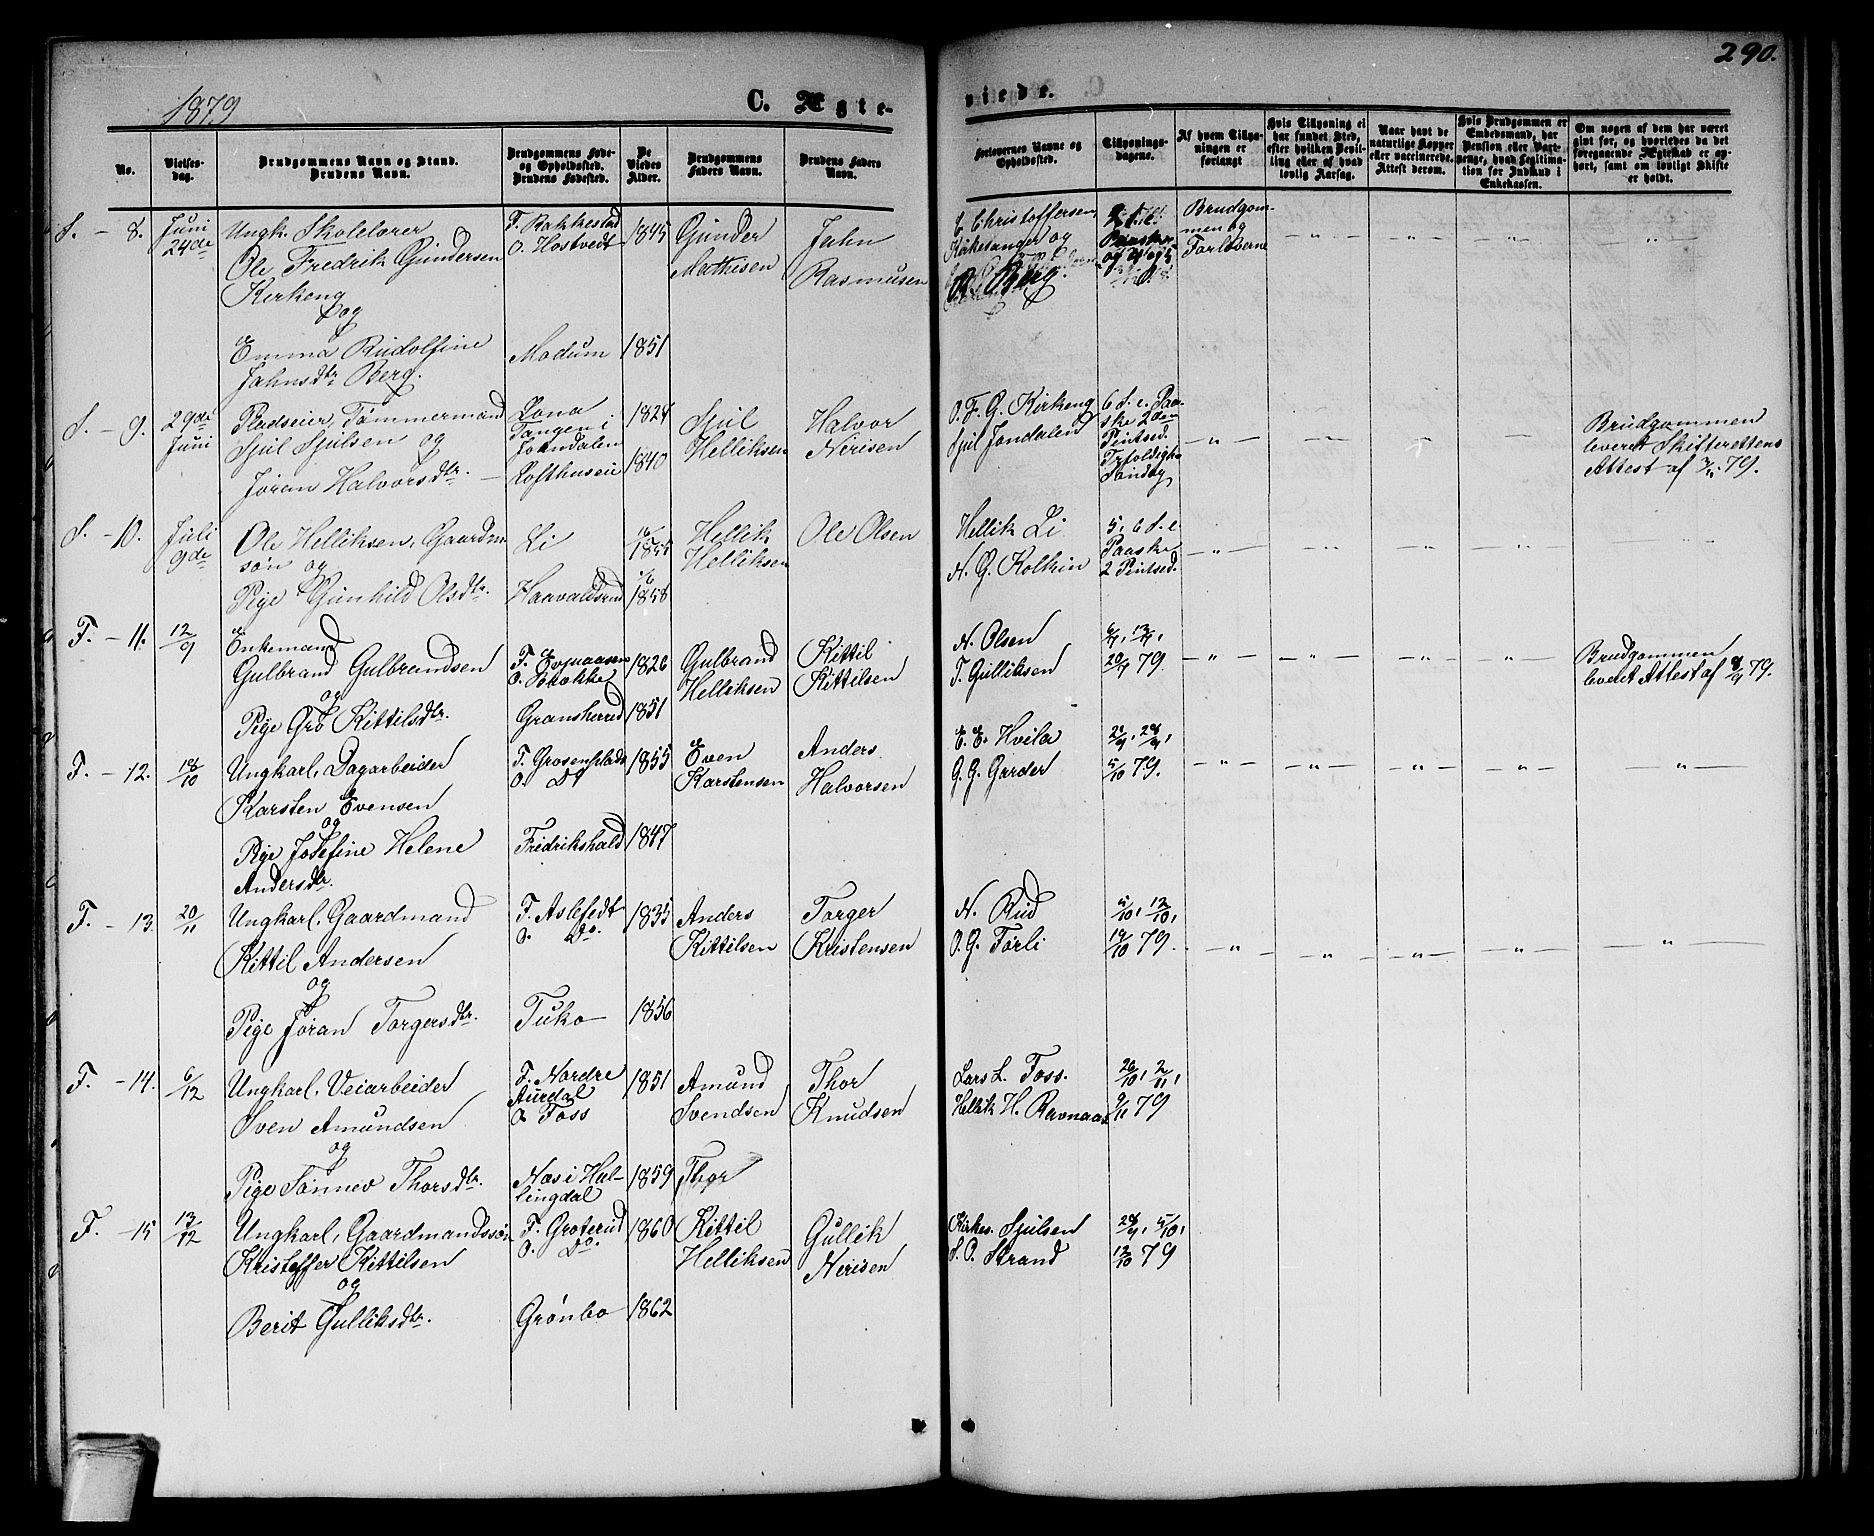 290.
1879
C. Ægte-
viede.
No.
Vielses-
dag.
Brudgommens Navn og Stand.
Brudens Navn.
Brudgommens Føde-
og Opholdssted.
Brudens Fødested.
De
Viedes
Alder.
Brudgommens
Faders Navn.
Brudens Faders
Navn.
Forlovernes Navne og
Opholdssted.
Tillysnings-
dagene.
Af hvem Tillys-
ningen er
forlangt
Hvis Tillysning ei
har fundet Sted,
efter hvilken Bevil-
ling eller af hvad
lovlig Aarsag.
Naar havt de
naturlige Kopper
eller vaccinerede.
Attest derom.
Hvis Brudgommen er
Embedsmand, har
Pension eller Vart-
penge, hvad Legitima-
tion for Indskud i
Enkekassen.
Om nogen af dem har været
gift før, og hvorledes da det
foregaaende Ægteskab er op-
hørt, samt om lovligt Skifte
er holdt.
S. - 8.
Juni
24de
Ungk. Skolelærer
Ole Fredrik Gundersen
Kirkeng
og
Emma Rudolfine
Jahnsdtr. Berg.
F. Bakkestad
O. Hostvedt
Modum
1845
1851
Gunder
Mathisen
Jahn
Rasmusen
C Christoffersen
Kirkesanger og
Berg.
Brudgom-
men og
Forloverne
S. - 9.
29de
Juni
Pladseier, Tømmermand
Sjul Sjulsen og
Jøran Halvorsdtr.
Lona
Tangen i
Jondalen
Lofthusei
1824
1840
Sjul
Helliksen
Halvor
Nirisen
O. F. G. Kirkeng
Sjul Jondalen
6 S. e. Paa-
ske 2den
Pintsed.
Trfoldigh.
Søndag
Brudgommen
leveret Skifterettens
Attest af 79.
S. - 10.
Juli
9de
Ole Helliksen, Gaardm.
søn og
Pige Gunhild Olsdtr.
Li
Haavaldsrud
1855
1858
Hellik
Helliksen
Ole Olsen
Hellik Li
N. G. Kolkin
5, 6 S. e.
Paaske
2 Pintsed.
F. - 11.
12/9
Enkemand
Gulbrand Gulbrandsen
og
Pige Gro Kittilsdtr.
F. Evjuaasen
O. Stokke
Gransherred
1826
1851
Gulbrand
Helliksen
Kittil
Kittilsen
N. Olsen
T. Gulliksen
6/4, 13/4,
20/4 79.
Brudgommen
leveret Attest af 79.
F. - 12.
18/10
Ungkarl, Dagarbeider
Karsten Evensen
og
Pige Josefine Helene
Andersdtr.
F. Grosenplads
O. Do
Fredrikshald
1855
1847
Even
Karstensen
Anders
Halvorsen
E. E. Hvila
G. G. Garder
21/9, 28/9,
5/10 79.
F. - 13.
20/11
Ungkarl, Gaardmand
Kittil Andersen
og
Pige Jøran Torgersdtr.
F. Aslefedt
O. Do.
Tuko
1835
1856
Anders
Kittilsen
Torger
Kristensen
N. Rud
O. G. Førli
5/10, 12/10,
19/10 79.
F. - 14.
6/12
Ungkarl, Veiarbeider
Sven Amundsen
og
Pige Sønnev Thorsdtr.
F. Nordre
Aurdal
O. Foss
Næs i Hal-
lingdal
1851
1859
Amund
Svendsen
Thor
Thor
Knudsen
Lars L. Foss.
Hellik H. Ravnaas
26/10, 2/11,
9/11 79
F. - 15
13/12
Ungkarl, Gaardmandssøn
Kristoffer Kittilsen
og
Berit Gulliksdtr.
F. Groterud
O. Do.
Grønbo
1860
1862
Kittil
Helliksen
Gullik
Nirisen
Kirkes. Sjulsen
S. P. Strand
28/9, 5/10,
12/10 79